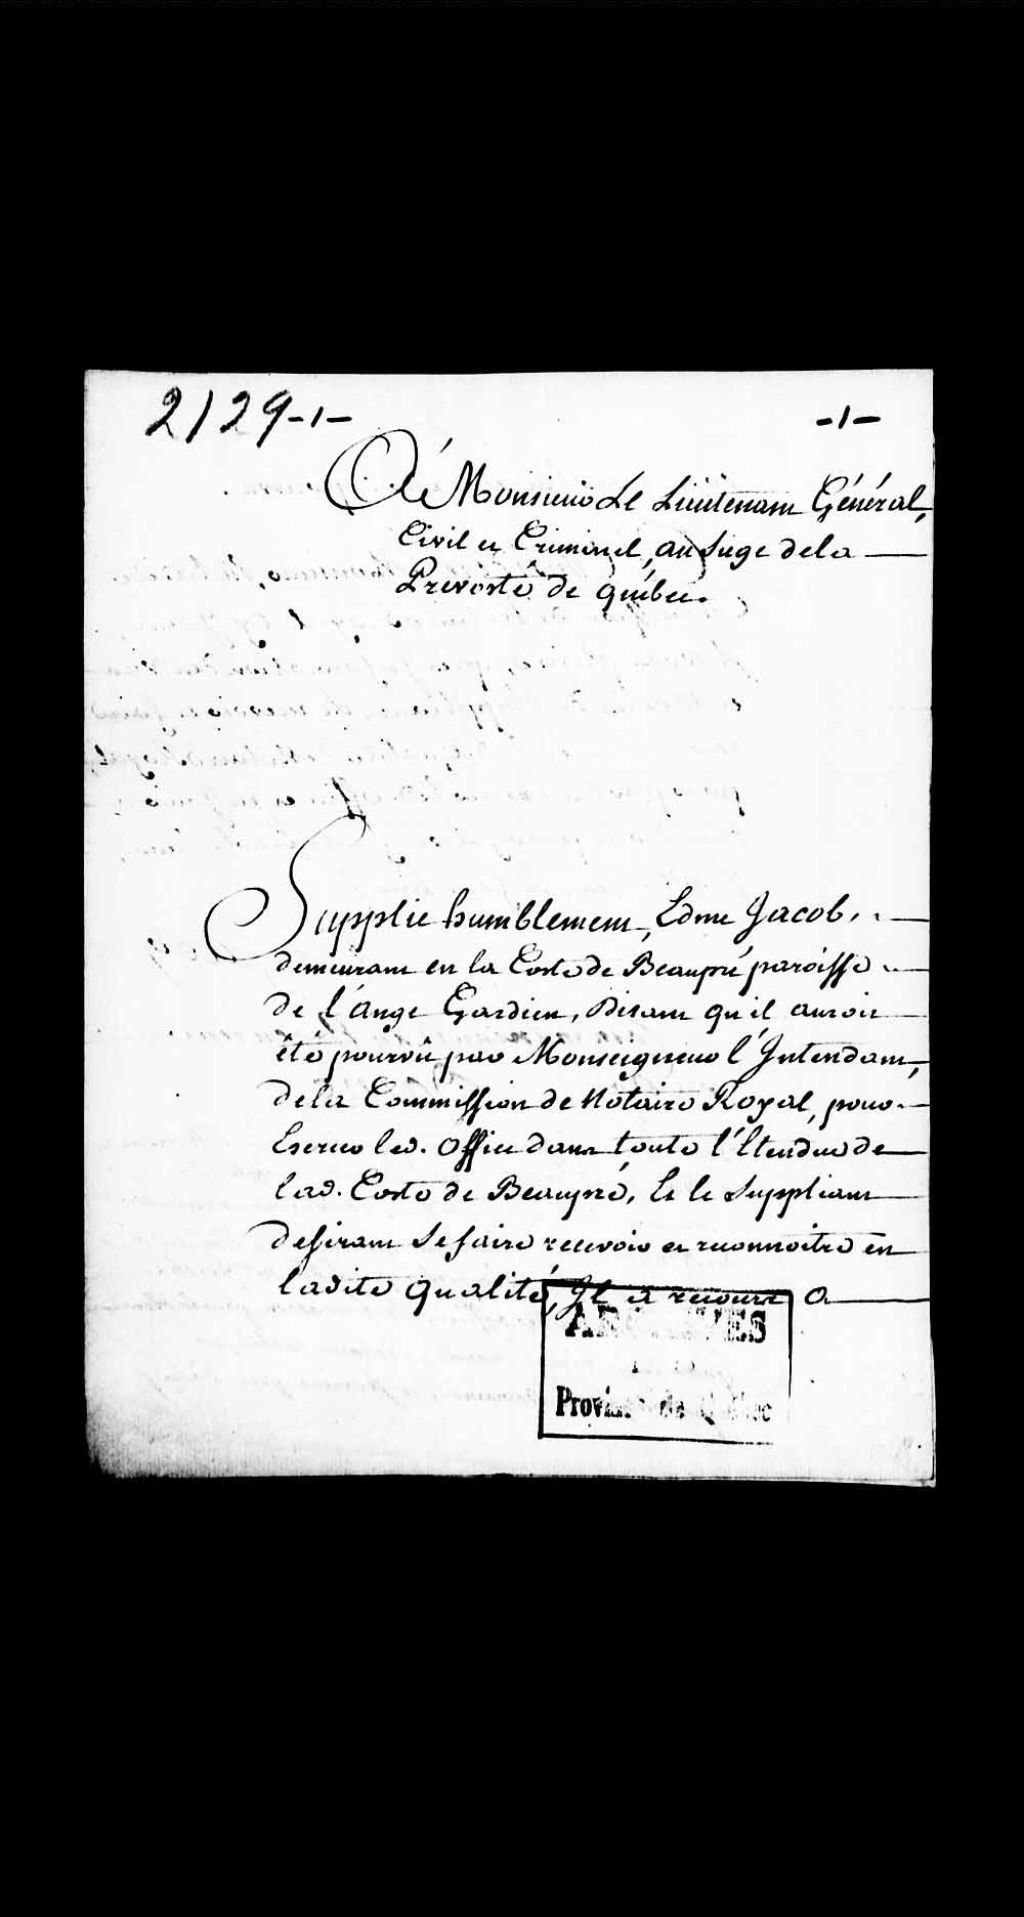 2129-1-
-1-
A Monsieur Le Lieutenant Général,
Civil et Criminel, au Siege de la
Prevosté de québec.
Supplie humblement, Edme Jacob,
demeurant en la Coste de Beaupré paroisse
de l'ange Gardien, Disant qu'il auroit
été pourvû par Monseigneur l'Intendant,
de la Commission de Notaire Royal, pour
Exercer led. office dans toute l'Etendue de
lad. Coste de Beaupré, Et le Suppliant
desirant Se faire recevoir et reconnoitre en
ladite qualité, Il a recours a
ARCHIVES
Province de Québec